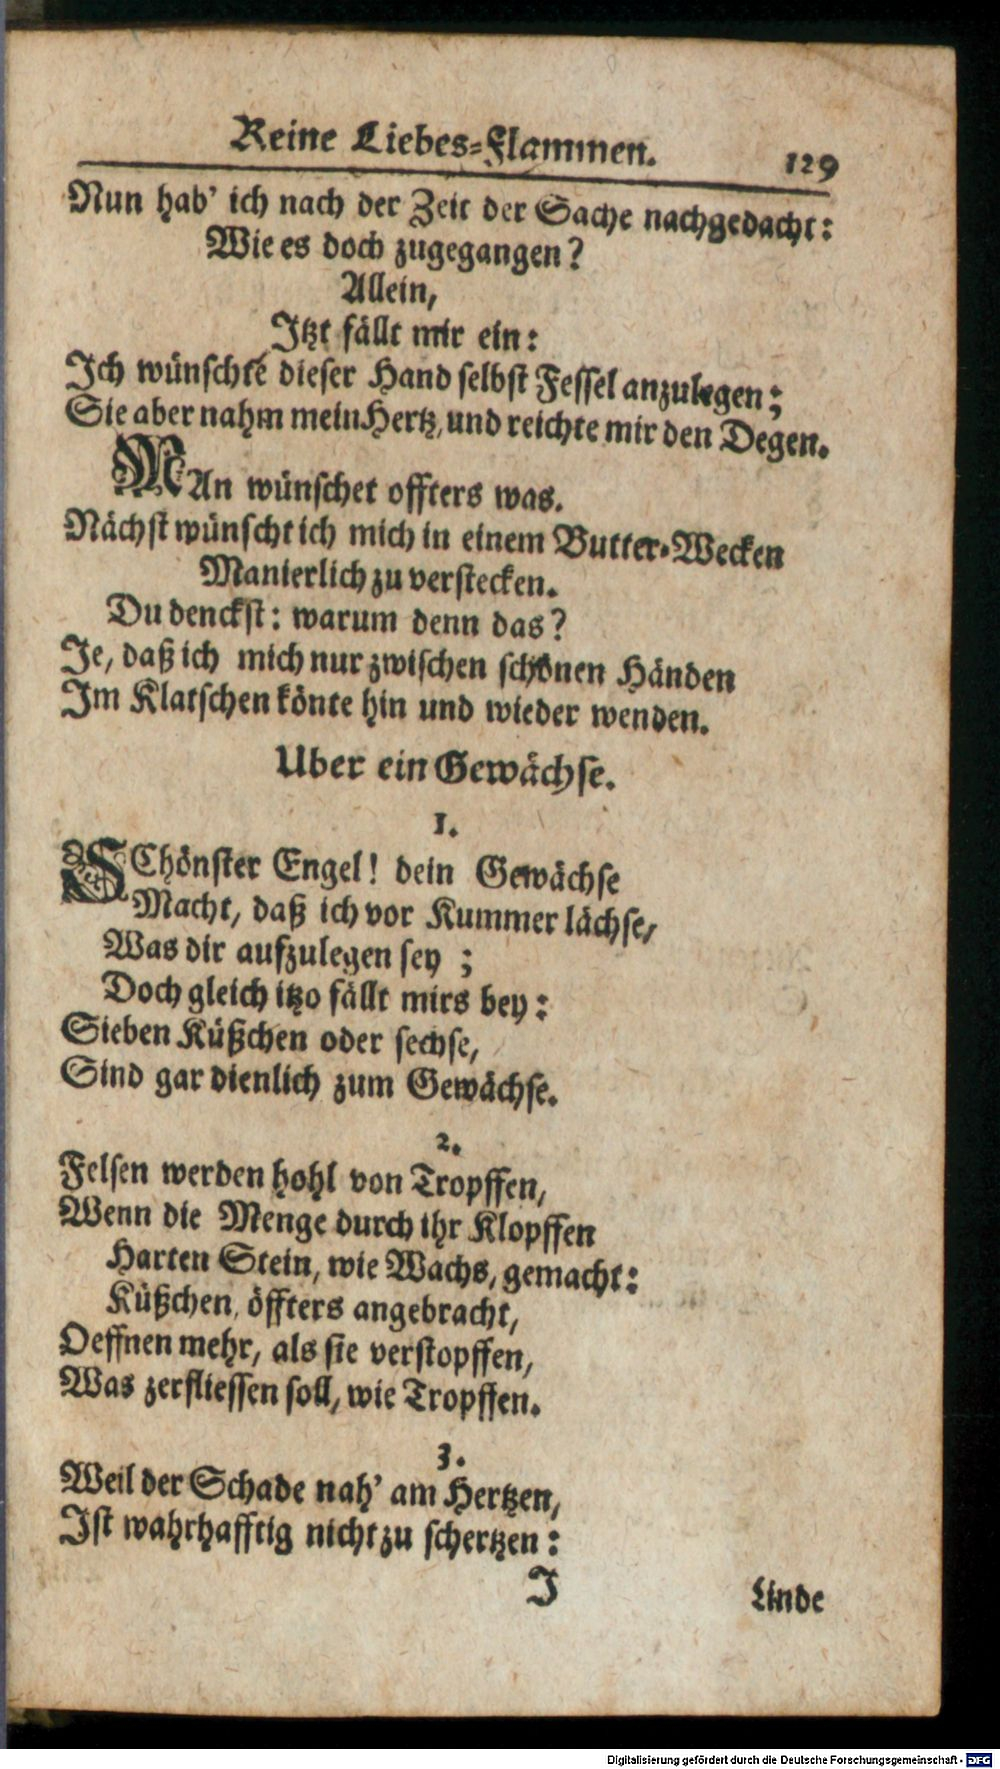 Reine Liebes-Flammen. 129
Nun hab' ich nach der Zeit der Sache nachgedacht:
Wie es doch zugegangen?
Allein,
Itzt fällt mir ein:
Ich wünschte dieser Hand selbst Fessel anzulegen;
Sie aber nahm mein Hertz, und reichte mir den Degen.
MAn wünschet offters was.
Nächst wünscht ich mich in einem Butter-Wecken
Manierlich zu verstecken.
Du denckst: warum denn das?
Je, daß ich mich nur zwischen schönen Händen
Im Klatschen könte hin und wieder wenden.
Uber ein Gewächse.
1.
SChönster Engel! dein Gewächse
Macht, daß ich vor Kummer lächse,
Was dir aufzulegen sey ;
Doch gleich itzo fällt mirs bey:
Sieben Küßchen oder sechse,
Sind gar dienlich zum Gewächse.
2.
Felsen werden hohl von Tropffen,
Wenn die Menge durch ihr Klopffen
Harten Stein, wie Wachs, gemacht:
Küßchen, öffters angebracht,
Oeffnen mehr, als sie verstopffen,
Was zerfliessen soll, wie Tropffen.
3.
Weil der Schade nah' am Hertzen,
Ist wahrhafftig nicht zu schertzen:
J Linde
Digitalisierung gefördert durch die Deutsche Forschungsgemeinschaft - DFG